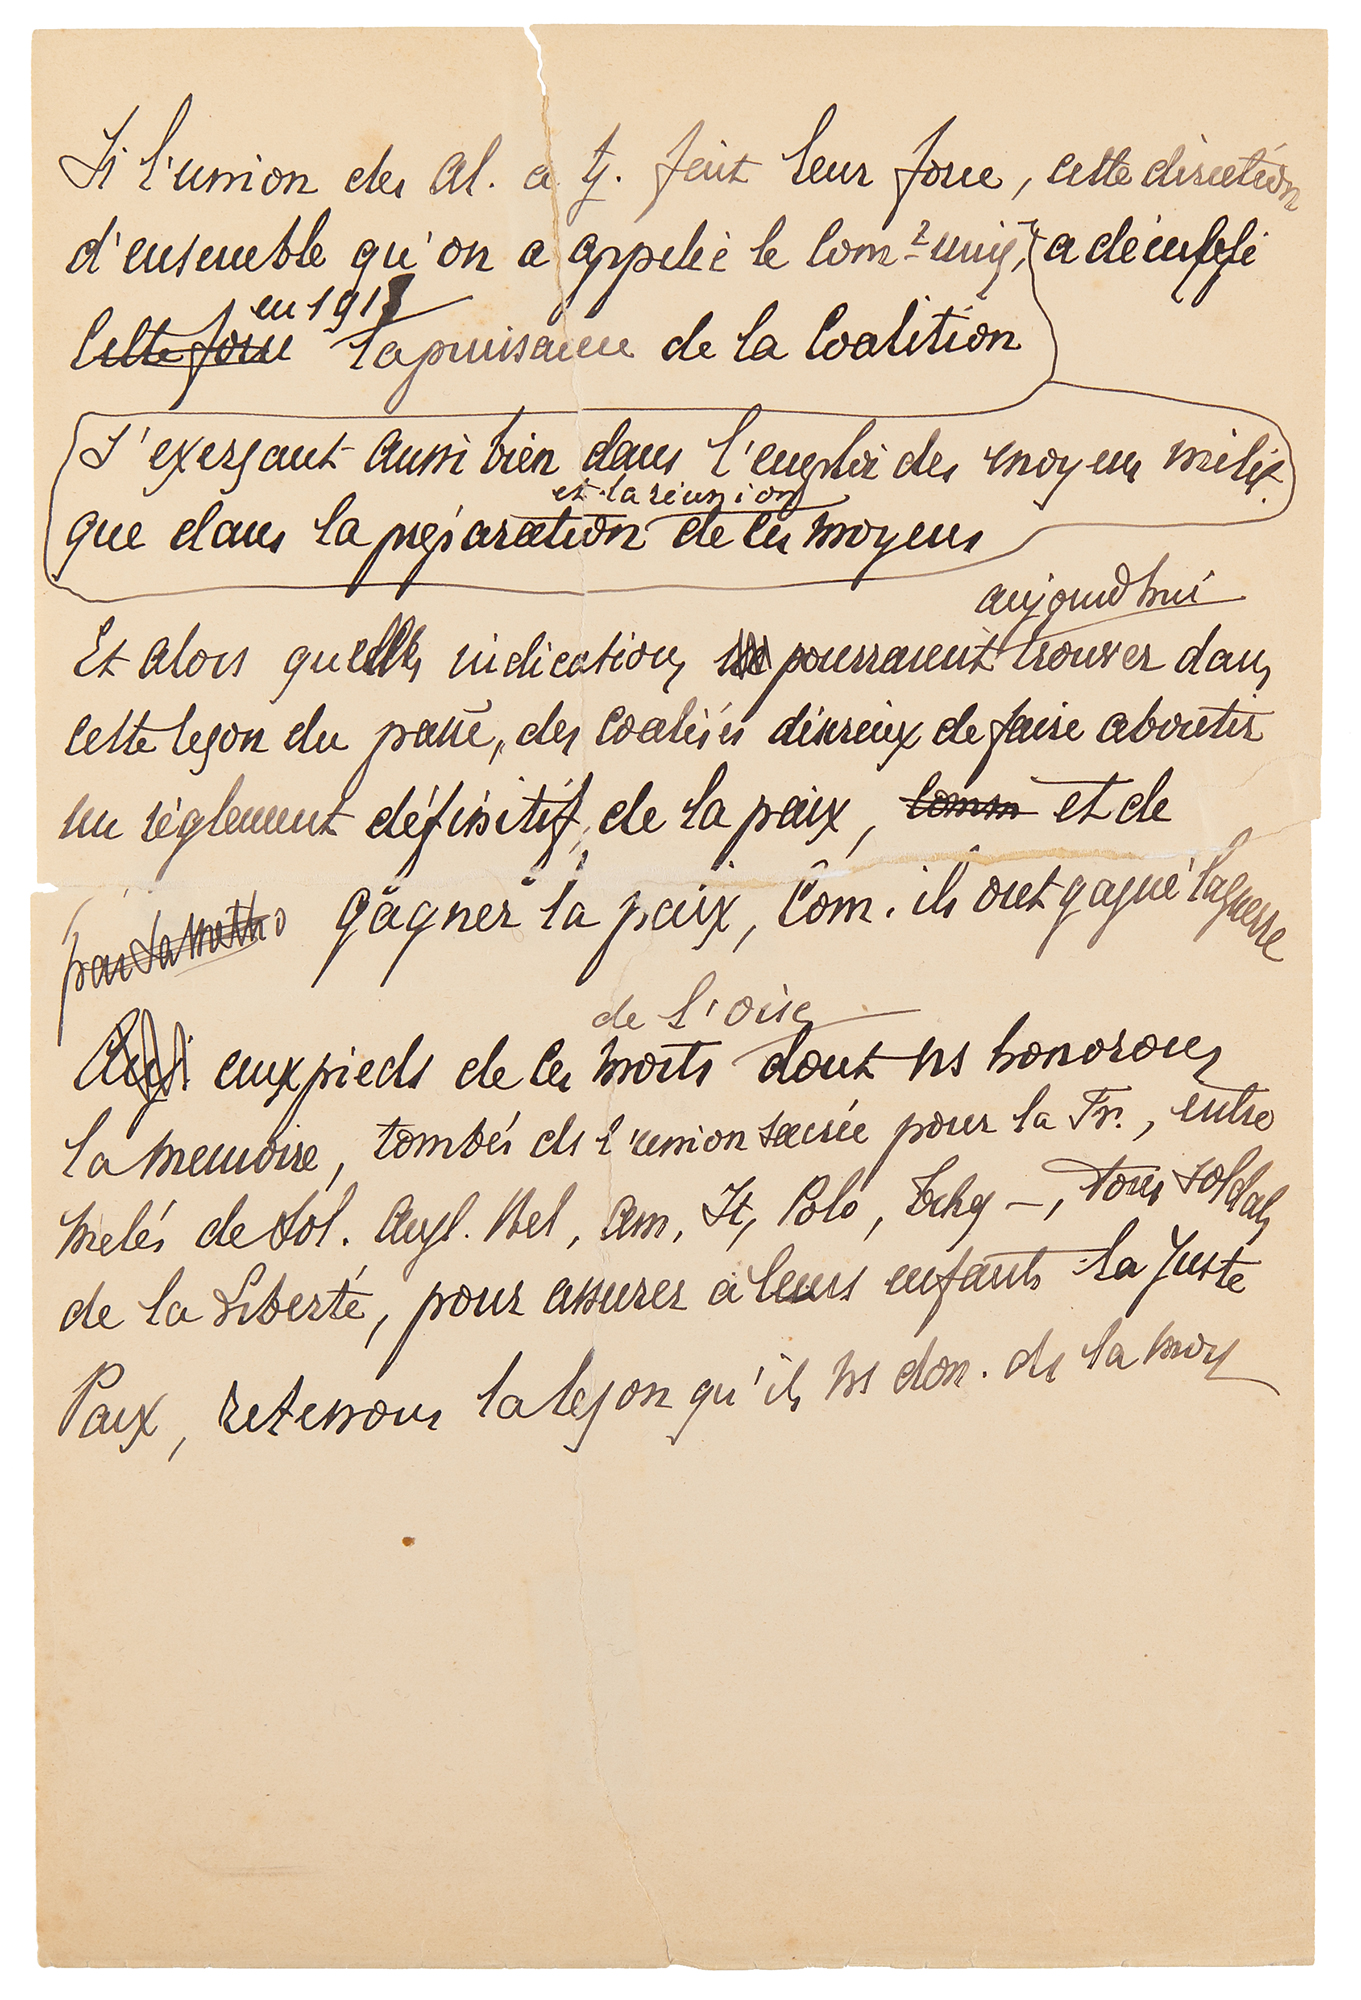 Si l'union des Al. a tj. fait leur force, cette direction
d'ensemble qu'on a appelée le Com. uniq, a décuplé
en 1918
Cette force la puissance de la Coalition
S'exerçant aussi bien dans l'emploi des moyens milit.
et la réunion
que dans la préparation de ces moyens
aujourd'hui
Et alors quelles indications pourraient trouver dans
cette leçon du passé, des coalisés désireux de faire aboutir
un règlement définitif, de la paix, comm et de
par la metho gagner la paix, Com. ils ont gagné la guerre
de l'Oise
aux pieds de ces morts dont ns honorons
la memoire, tombés ds l'union sacrée pour la Fr., entre
melés de Sol. Angl. Bel, Am, It, Polo, Tchq –, tous soldats
de la Liberté, pour assurer à leurs enfants la Juste
Paix, retenons la leçon qu'ils ns don. ds la